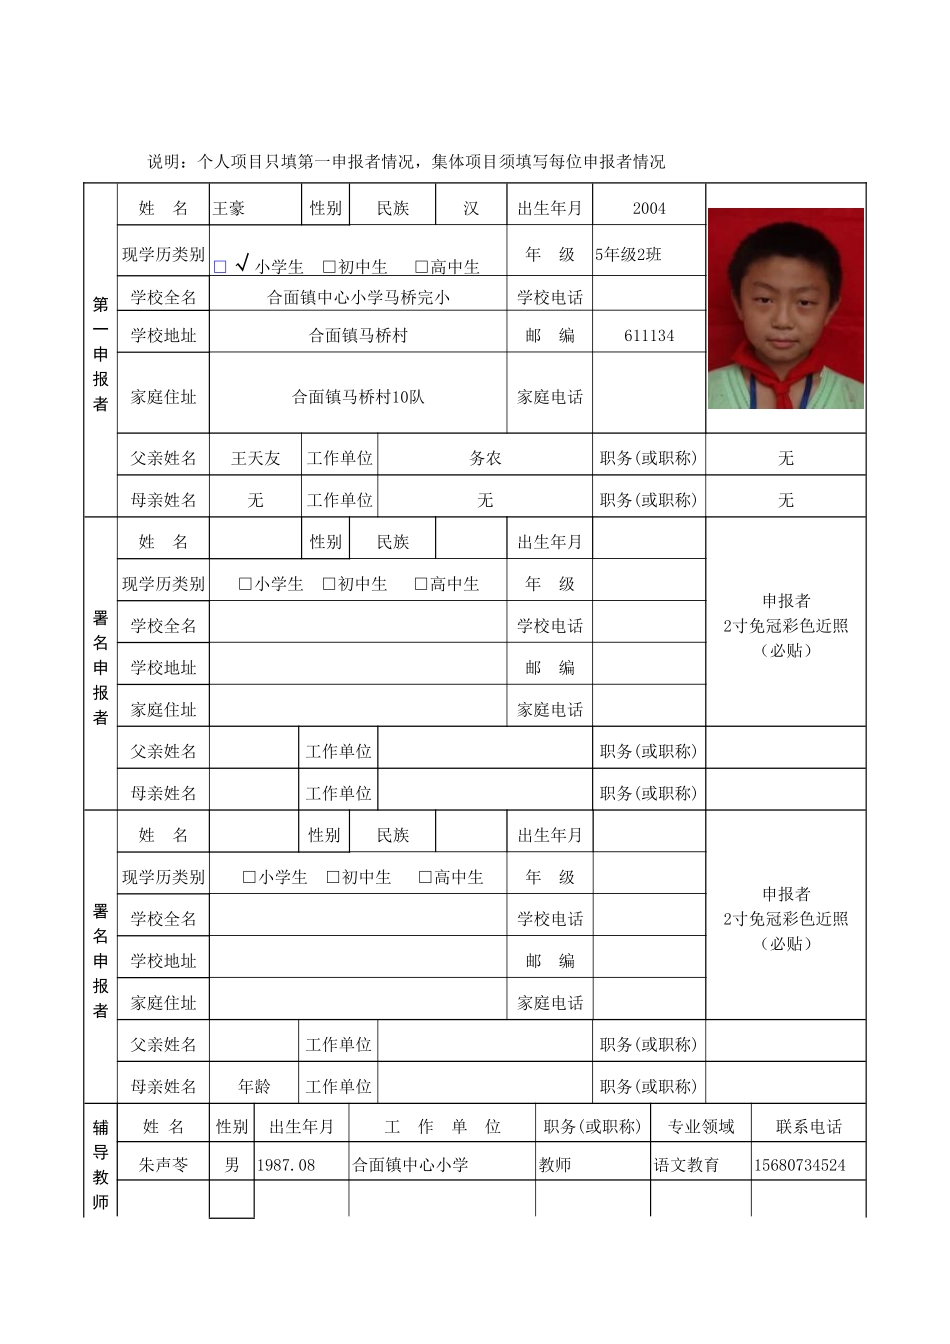 说明：个人项目只填第一申报者情况，集体项目须填写每位申报者情况
第一申报者
姓 名 王豪 性别 民族 汉 出生年月 2004
现学历类别 □ √ 小学生 □初中生 □高中生 年 级 5年级2班
学校全名 合面镇中心小学马桥完小 学校电话
学校地址 合面镇马桥村 邮 编 611134
家庭住址 合面镇马桥村10队 家庭电话
父亲姓名 王天友 工作单位 务农 职务(或职称) 无
母亲姓名 无 工作单位 无 职务(或职称) 无
署名申报者
姓 名 性别 民族 出生年月
现学历类别 □小学生 □初中生 □高中生 年 级
学校全名 学校电话
学校地址 邮 编
家庭住址 家庭电话
申报者
2寸免冠彩色近照
（必贴）
父亲姓名 工作单位 职务(或职称)
母亲姓名 工作单位 职务(或职称)
署名申报者
姓 名 性别 民族 出生年月
现学历类别 □小学生 □初中生 □高中生 年 级
学校全名 学校电话
学校地址 邮 编
家庭住址 家庭电话
申报者
2寸免冠彩色近照
（必贴）
父亲姓名 工作单位 职务(或职称)
母亲姓名 年龄 工作单位 职务(或职称)
辅导教师
姓 名 性别 出生年月 工 作 单 位 职务(或职称) 专业领域 联系电话
朱声苓 男 1987.08 合面镇中心小学 教师 语文教育 15680734524